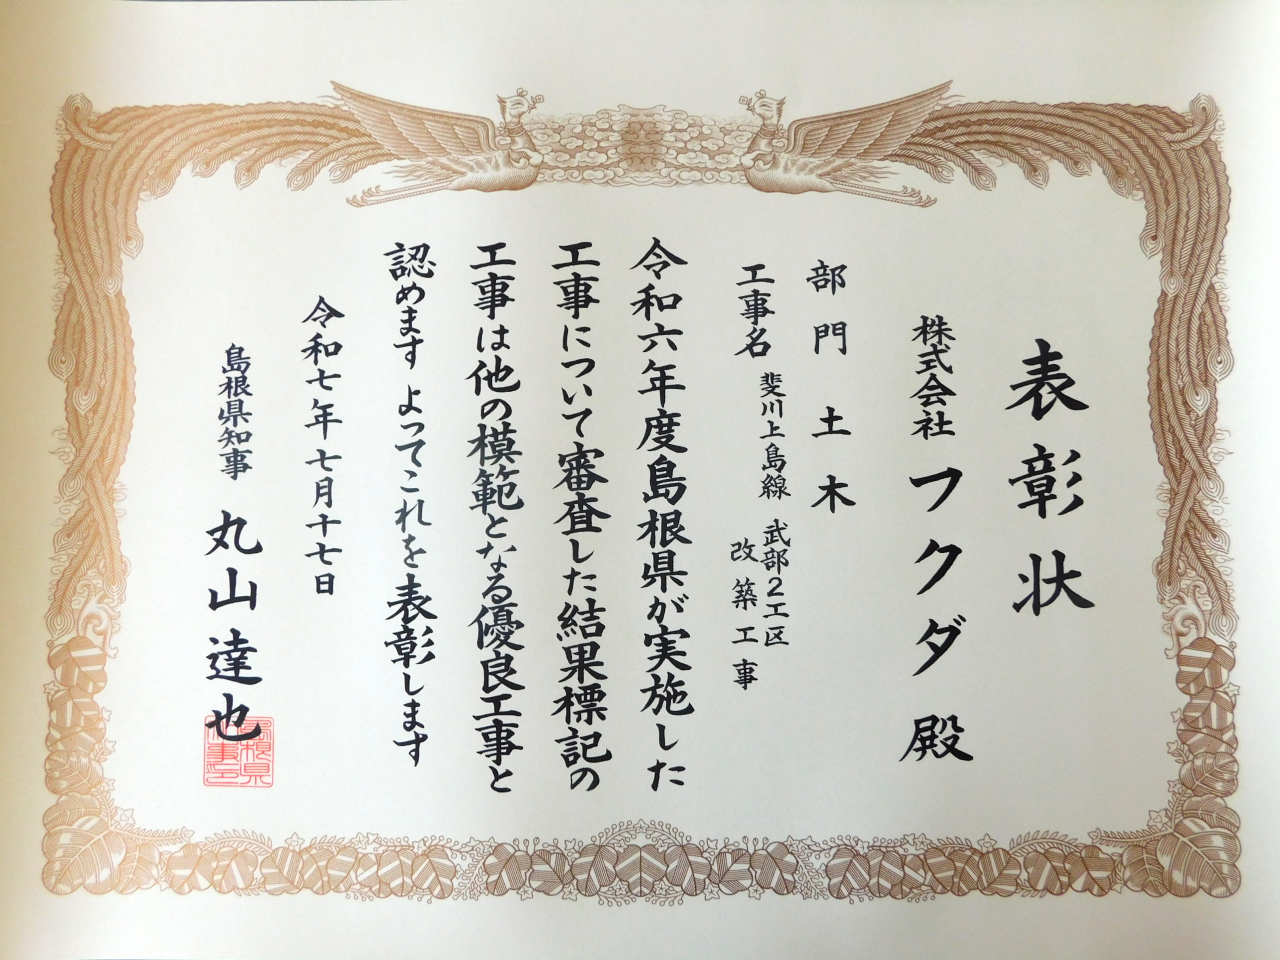 表彰状
株式会社 フクダ 殿
部門 土木
工事名 斐川上島線 武部2工区
改築工事
令和六年度島根県が実施した
工事について審査した結果標記の
工事は他の模範となる優良工事と
認めます よってこれを表彰します
令和七年七月十七日
島根県知事 丸山達也
島根県
知事印